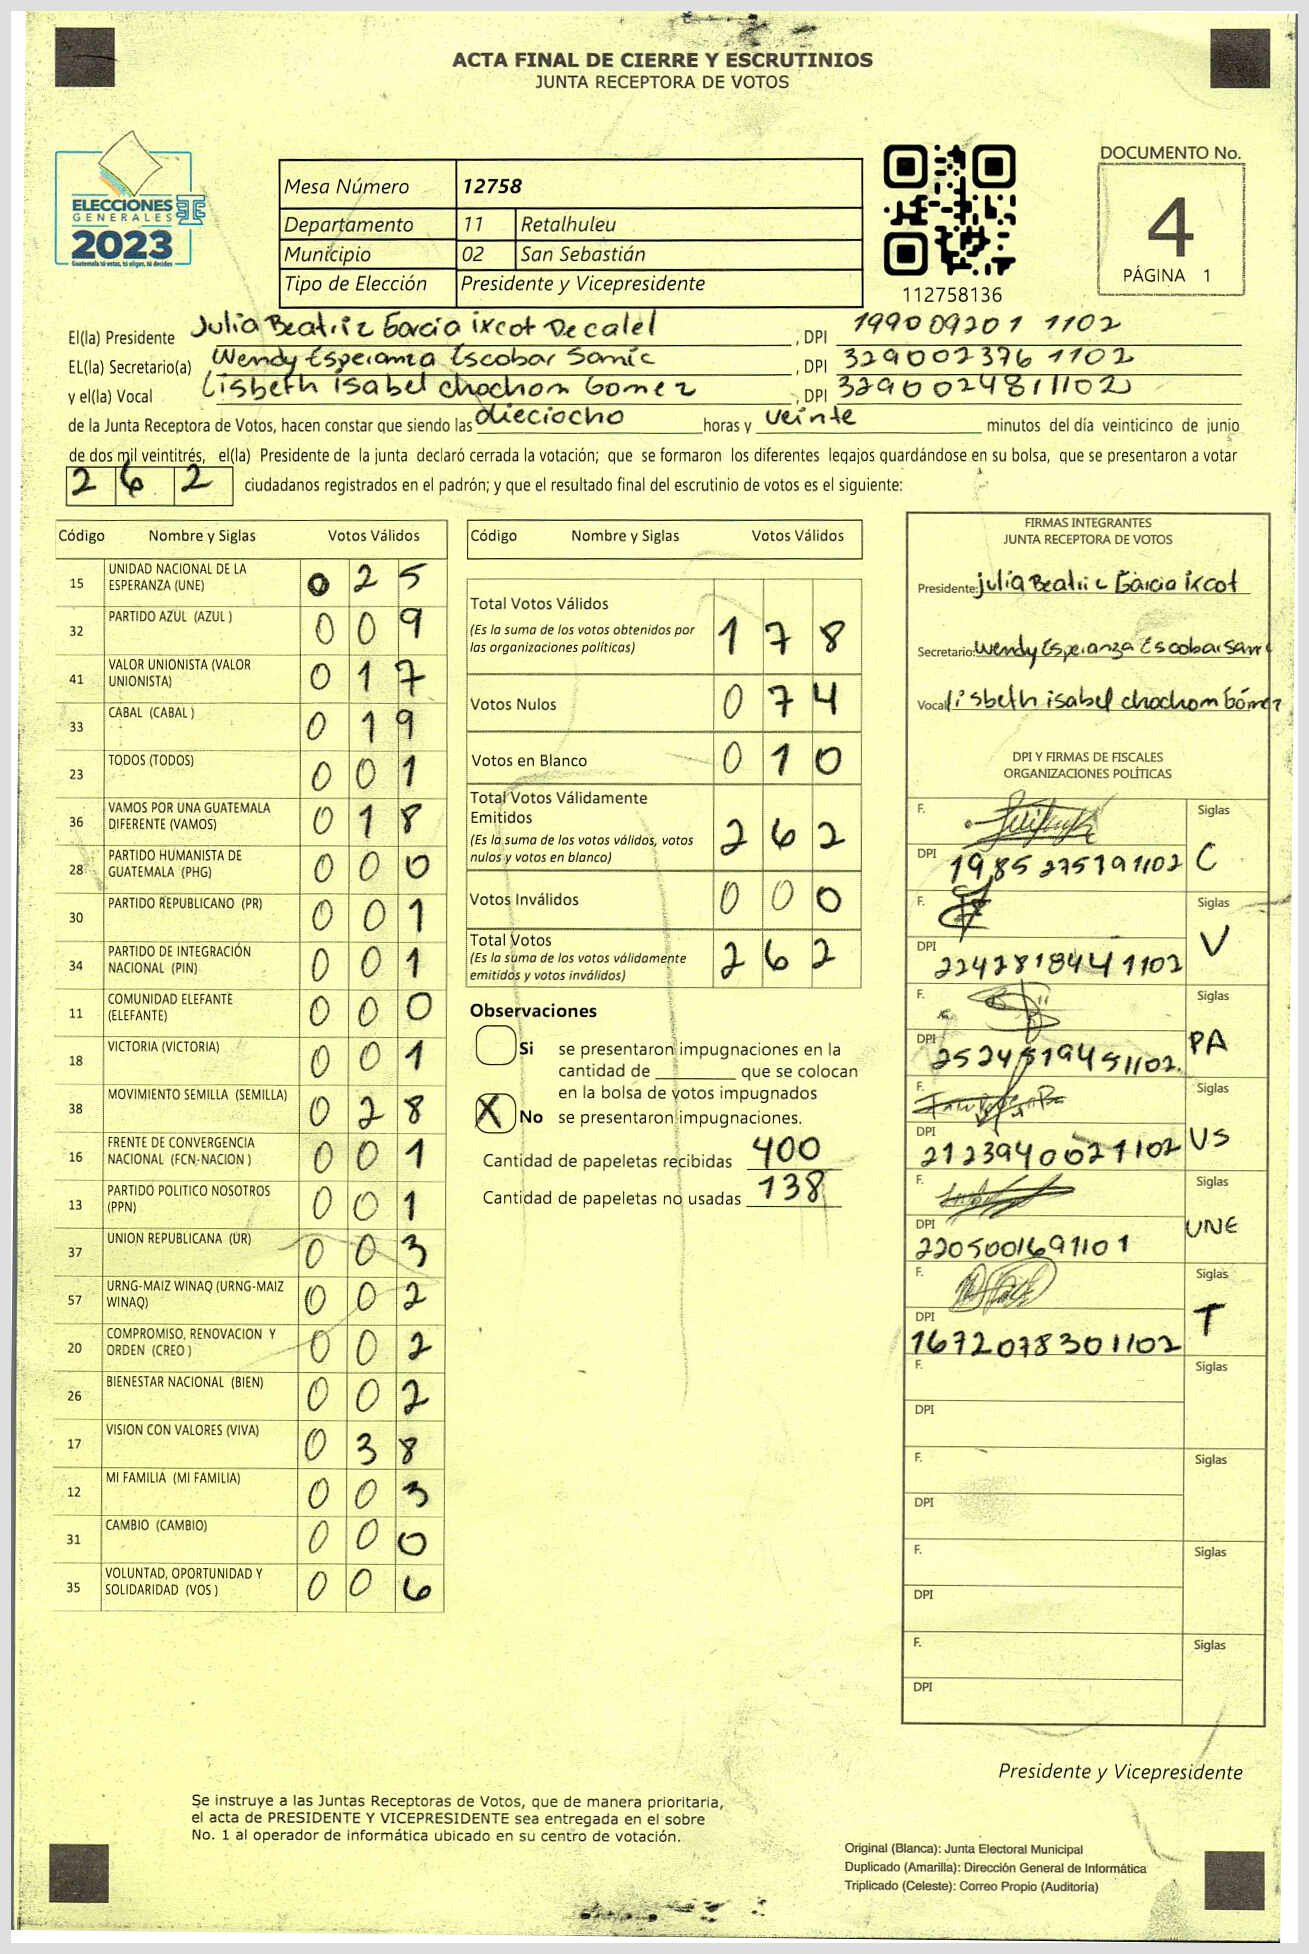 ACTA FINAL DE CIERRE Y ESCRUTINIOS
JUNTA RECEPTORA DE VOTOS
ELECCIONES
GENERALES
2023
Guatemala tú votas, tú eliges, tú decides
Mesa Número 12758
Departamento 11 Retalhuleu
Municipio 02 San Sebastián
Tipo de Elección Presidente y Vicepresidente
112758136
DOCUMENTO No.
4
PÁGINA 1
El(la) Presidente Julia Beatriz Garcia ixcot De calel, DPI 199009201 1102
EL(la) Secretario(a) Wendy Esperanza Escobar Samic, DPI 329002376 1102
y el(la) Vocal Lisbeth isabel chochom Gomez, DPI 3290024811102
de la Junta Receptora de Votos, hacen constar que siendo las dieciocho horas y veinte minutos del día veinticinco de junio
de dos mil veintitrés, el(la) Presidente de la junta declaró cerrada la votación; que se formaron los diferentes legajos guardándose en su bolsa, que se presentaron a votar
262 ciudadanos registrados en el padrón; y que el resultado final del escrutinio de votos es el siguiente:
Código Nombre y Siglas Votos Válidos
15 UNIDAD NACIONAL DE LA ESPERANZA (UNE) 0 2 5
32 PARTIDO AZUL (AZUL ) 0 0 9
41 VALOR UNIONISTA (VALOR UNIONISTA) 0 1 7
33 CABAL (CABAL ) 0 1 9
23 TODOS (TODOS) 0 0 1
36 VAMOS POR UNA GUATEMALA DIFERENTE (VAMOS) 0 1 8
28 PARTIDO HUMANISTA DE GUATEMALA (PHG) 0 0 0
30 PARTIDO REPUBLICANO (PR) 0 0 1
34 PARTIDO DE INTEGRACIÓN NACIONAL (PIN) 0 0 1
11 COMUNIDAD ELEFANTE (ELEFANTE) 0 0 0
18 VICTORIA (VICTORIA) 0 0 1
38 MOVIMIENTO SEMILLA (SEMILLA) 0 2 8
16 FRENTE DE CONVERGENCIA NACIONAL (FCN-NACION ) 0 0 1
13 PARTIDO POLITICO NOSOTROS (PPN) 0 0 1
37 UNION REPUBLICANA (UR) 0 0 3
57 URNG-MAIZ WINAQ (URNG-MAIZ WINAQ) 0 0 2
20 COMPROMISO, RENOVACION Y ORDEN (CREO ) 0 0 2
26 BIENESTAR NACIONAL (BIEN) 0 0 2
17 VISION CON VALORES (VIVA) 0 3 8
12 MI FAMILIA (MI FAMILIA) 0 0 3
31 CAMBIO (CAMBIO) 0 0 0
35 VOLUNTAD, OPORTUNIDAD Y SOLIDARIDAD (VOS ) 0 0 6
Código Nombre y Siglas Votos Válidos
Total Votos Válidos
(Es la suma de los votos obtenidos por
las organizaciones políticas) 1 7 8
Votos Nulos 0 7 4
Votos en Blanco 0 1 0
Total Votos Válidamente
Emitidos
(Es la suma de los votos válidos, votos
nulos y votos en blanco) 2 6 2
Votos Inválidos 0 0 0
Total Votos
(Es la suma de los votos válidamente
emitidos y votos inválidos) 2 6 2
Observaciones
Si se presentaron impugnaciones en la
cantidad de ________ que se colocan
en la bolsa de votos impugnados
X No se presentaron impugnaciones.
Cantidad de papeletas recibidas 400
Cantidad de papeletas no usadas 138
FIRMAS INTEGRANTES
JUNTA RECEPTORA DE VOTOS
Presidente: julia Beatriz Garcia ixcot
Secretario: Wendy Esperanza Escobar Sami
Vocal lisbeth isabel chochom Gómez
DPI Y FIRMAS DE FISCALES
ORGANIZACIONES POLÍTICAS
F. Siglas
DPI 1985275191102 C
F. Siglas
DPI 2242818441102 V
F. Siglas
DPI 2524519451102. PA
F. Siglas
DPI 2123940021102 US
F. Siglas
DPI 2205001691101 UNE
F. Siglas
DPI 1672078301102 T
F. Siglas
DPI
F. Siglas
DPI
F. Siglas
DPI
F. Siglas
DPI
Presidente y Vicepresidente
Se instruye a las Juntas Receptoras de Votos, que de manera prioritaria,
el acta de PRESIDENTE Y VICEPRESIDENTE sea entregada en el sobre
No. 1 al operador de informática ubicado en su centro de votación.
Original (Blanca): Junta Electoral Municipal
Duplicado (Amarilla): Dirección General de Informática
Triplicado (Celeste): Correo Propio (Auditoría)